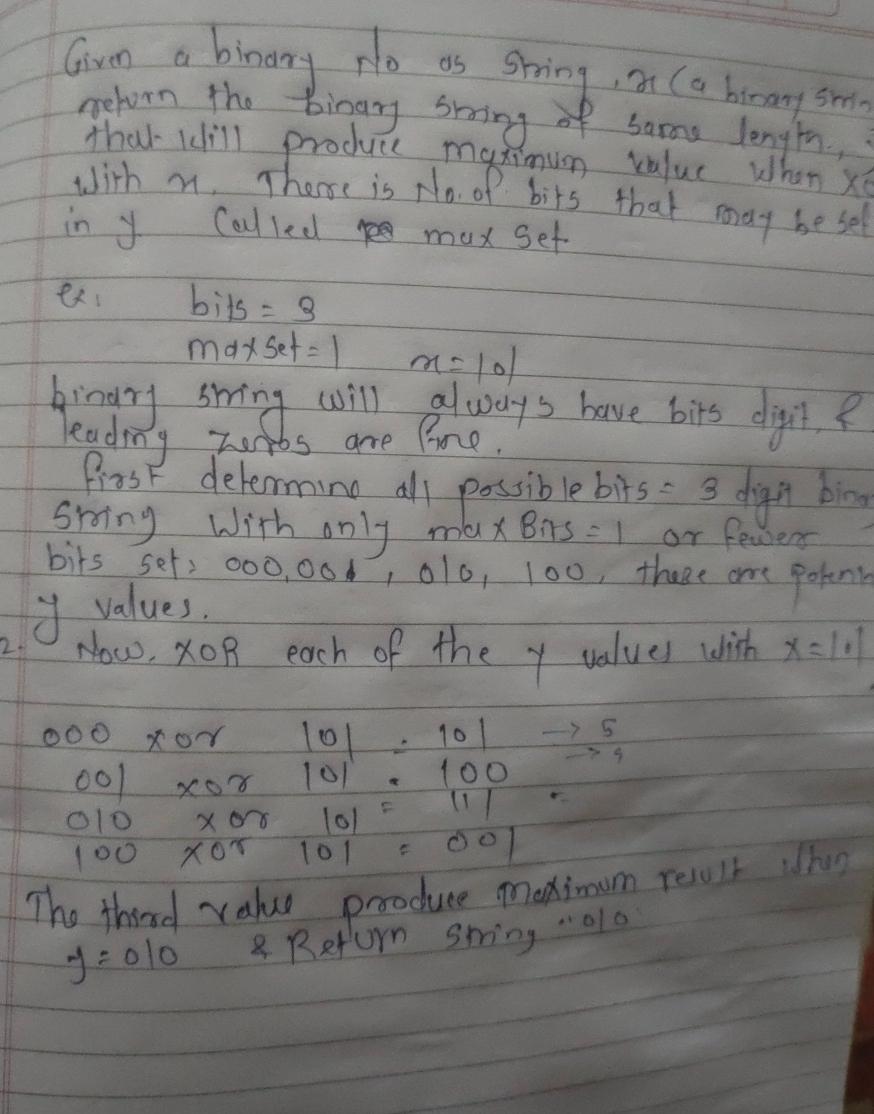 Given a binary No as String, x (a binary strin
return the binary string of same length,
that will produce maximum value when XO
with x. There is No. of bits that may be set
in y Called max Set
ex: bits = 3
maxset = 1 x = 101
binary string will always have bits digit, &
leading zeros are fine.
first determine all possible bits = 3 digit bina
String With only max Bits = 1 or fewer
bits set: 000, 001, 010, 100, these are potenti
y values.
2. Now, XOR each of the y values with x = 101
000 xor 101 = 101 → 5
001 xor 101 = 100 → 4
010 xor 101 = 111 ←
100 xor 101 = 001
The third value produce maximum result when
y = 010 & Return string "010